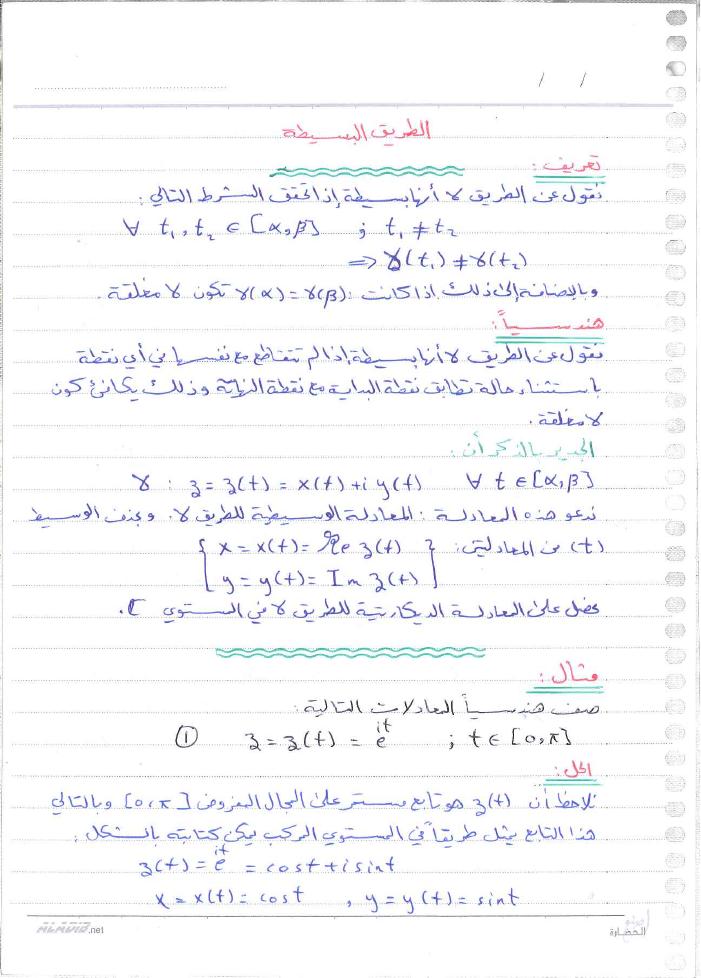 / /
الطريق البسيطة
تعريف :
نقول عن الطريق γ أنها بسيطة إذا تحقق الشرط التالي :
∀ t₁ , t₂ ∈ [α,β] ; t₁ ≠ t₂
⇒ γ(t₁) ≠ γ(t₂)
وبالإضافة إلى ذلك إذا كانت : γ(α) = γ(β) تكون γ مغلقة .
هندسياً :
نقول عن الطريق γ أنها بسيطة إذا لم تتقاطع مع نفسها في أي نقطة
باستثناء حالة تطابق نقطة البداية مع نقطة النهاية وذلك يكافئ كون
γ مغلقة .
الجدير بالذكر أن :
γ : z = z(t) = x(t) + i y(t) ∀ t ∈ [α,β]
ندعو هذه المعادلة : المعادلة الوسيطية للطريق γ . وبحذف الوسيط
(t) من المعادلتين : { x = x(t) = Re z(t)
y = y(t) = Im z(t) }
نحصل على المعادلة الديكارتية للطريق γ في المستوي C .
مثال :
صف هندسياً المعادلات التالية :
① z = z(t) = e^{it} ; t ∈ [0,π]
الحل :
نلاحظ أن z(t) هو تابع مستمر على المجال المفروض [0,π] وبالتالي
هذا التابع يمثل طريقاً في المستوي المركب يمكن كتابته بالشكل :
z(t) = e^{it} = cost + i sint
x = x(t) = cost , y = y(t) = sint
.net
الحضارة